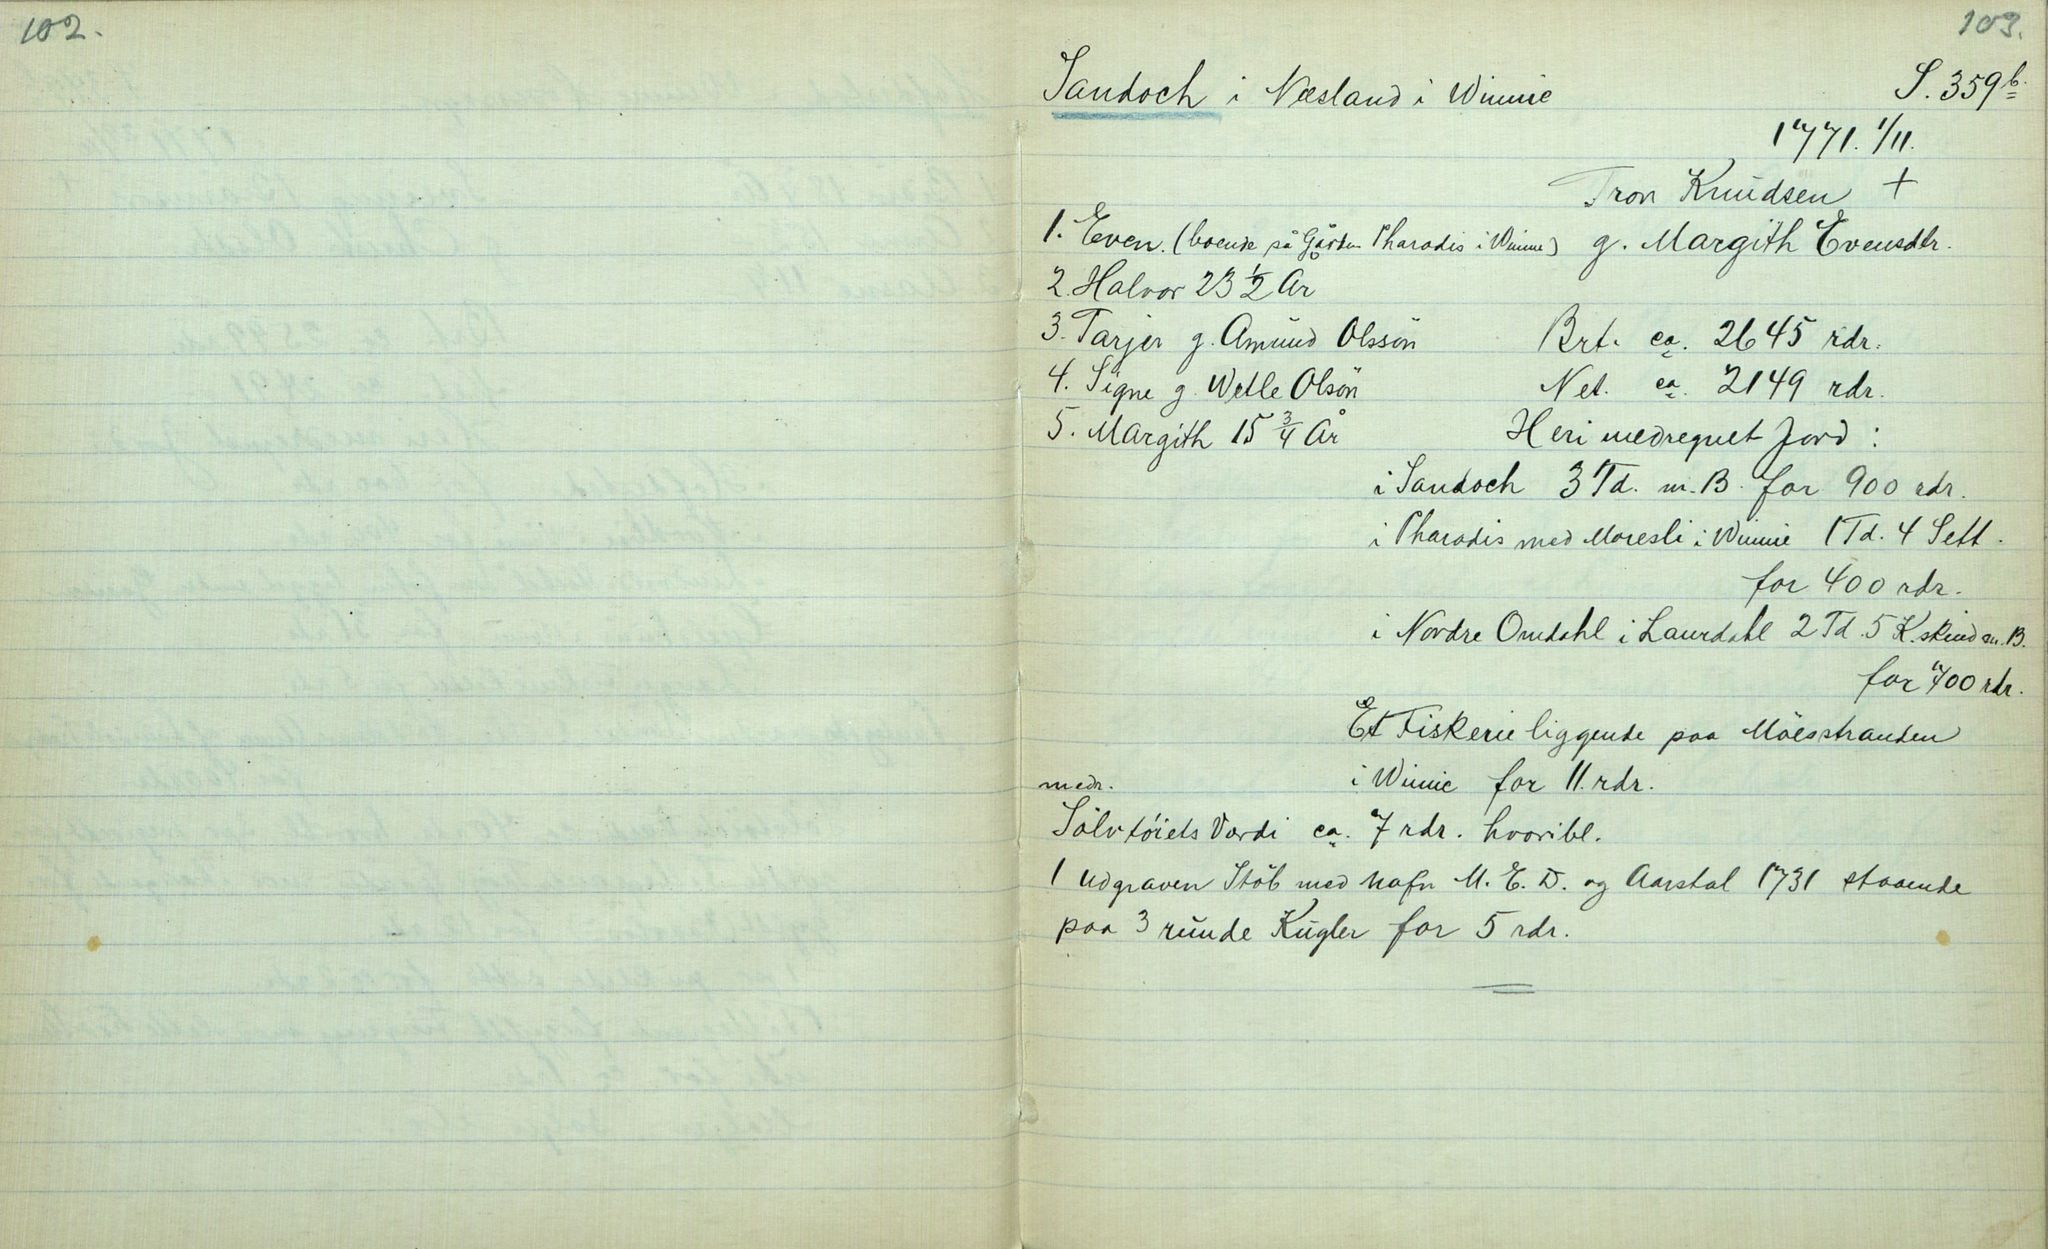 102.
103.
Sandoch i Næsland i Winnie S. 359 b.
1771. 1/11.
Tron Knudsen +
1. Even. (boende på Gården Pharadis i Winnie) g. Margith Evensdtr.
2. Halvor 23 1/2 Ar
3. Tarjer g. Amund Olssön Brt. ca. 2645 rdr.
4. Signe g. Wetle Olsön Net. ca. 2149 rdr.
5. Margith 15 3/4 År Heri medregnet Jord:
i Sandoch 3 Td. m. B. for 900 rdr.
i Pharadis med Moresli i Winnie 1 Td. 4 Sett.
for 400 rdr.
i Nordre Omdahl i Laurdahl 2 Td. 5 K.skind m. B.
for 700 rdr.
Et Fiskerie liggende paa Möesstranden
i Winnie for 11. rdr.
medr.
Sölvtöiets Værdi ca. 7 rdr. hvoribl.
1 udgraven Stöb med Nafn M. E. D. og Aarstal 1731 staaende
paa 3 runde Kugler for 5 rdr.